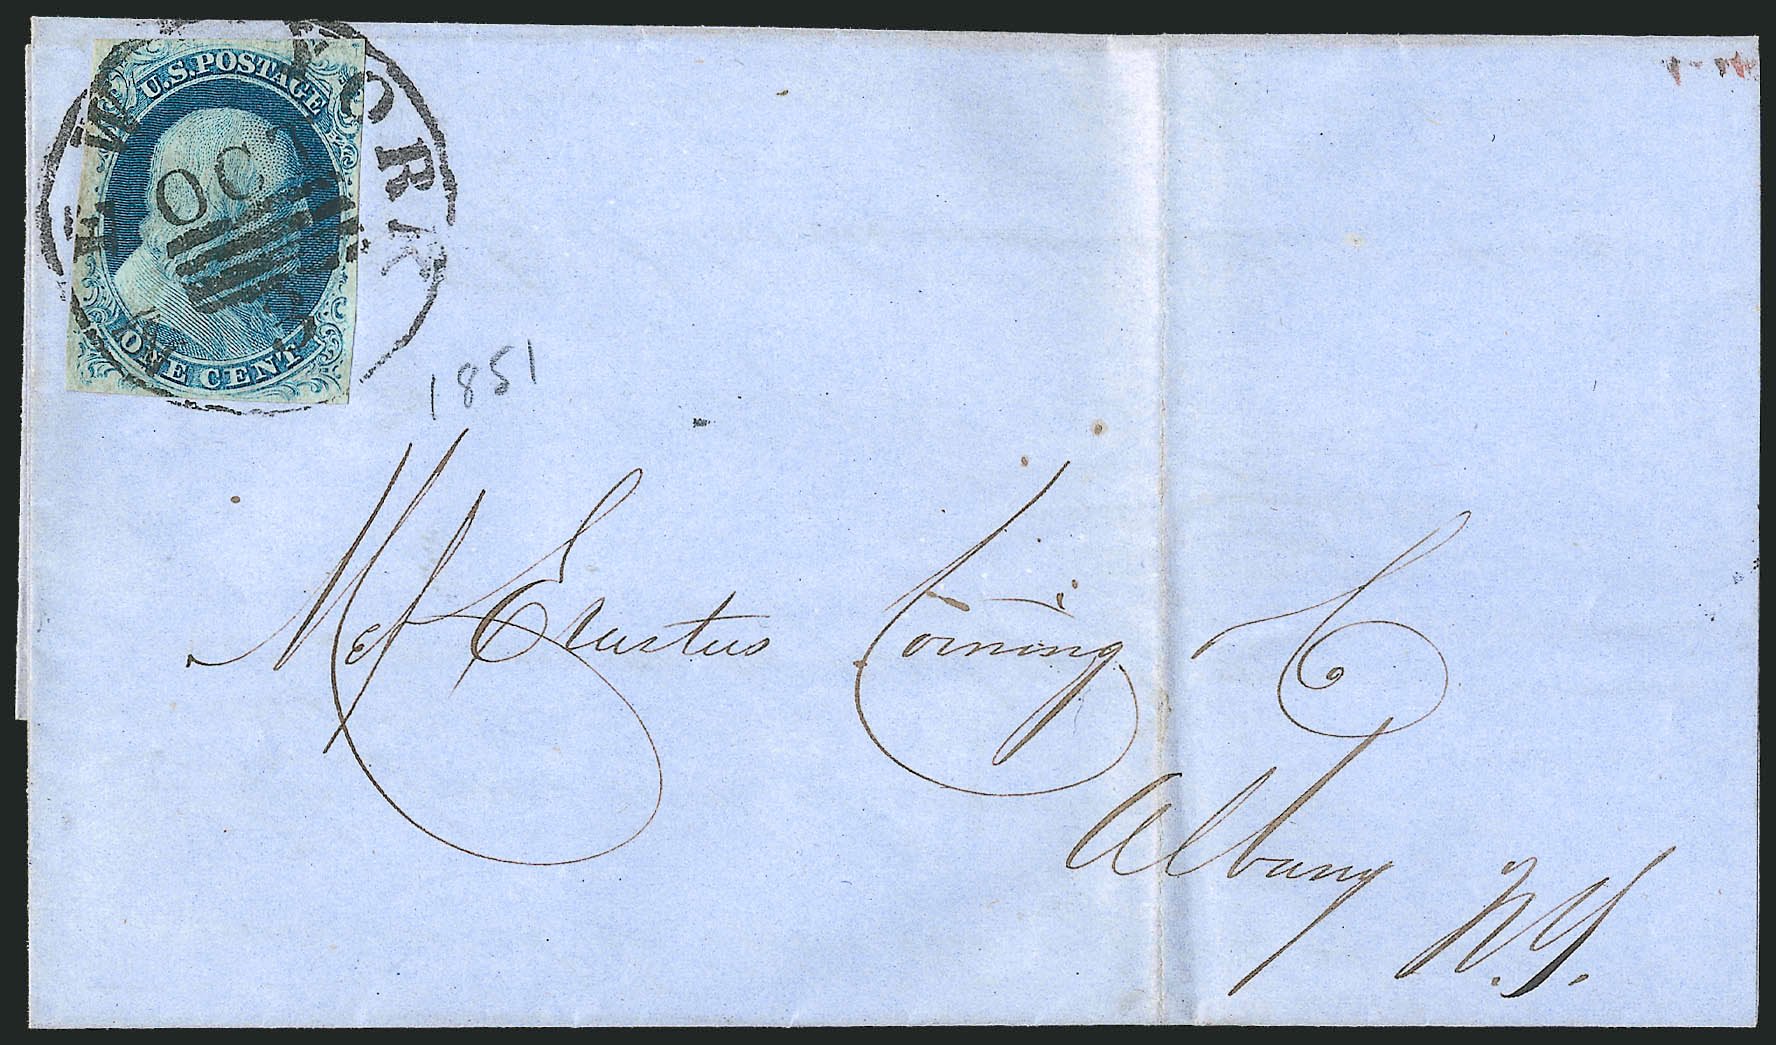 U.S. POSTAGE
ONE CENT
NEW YORK
OCT
1851
Mes Erastus Corning & Co
Albany N.Y.